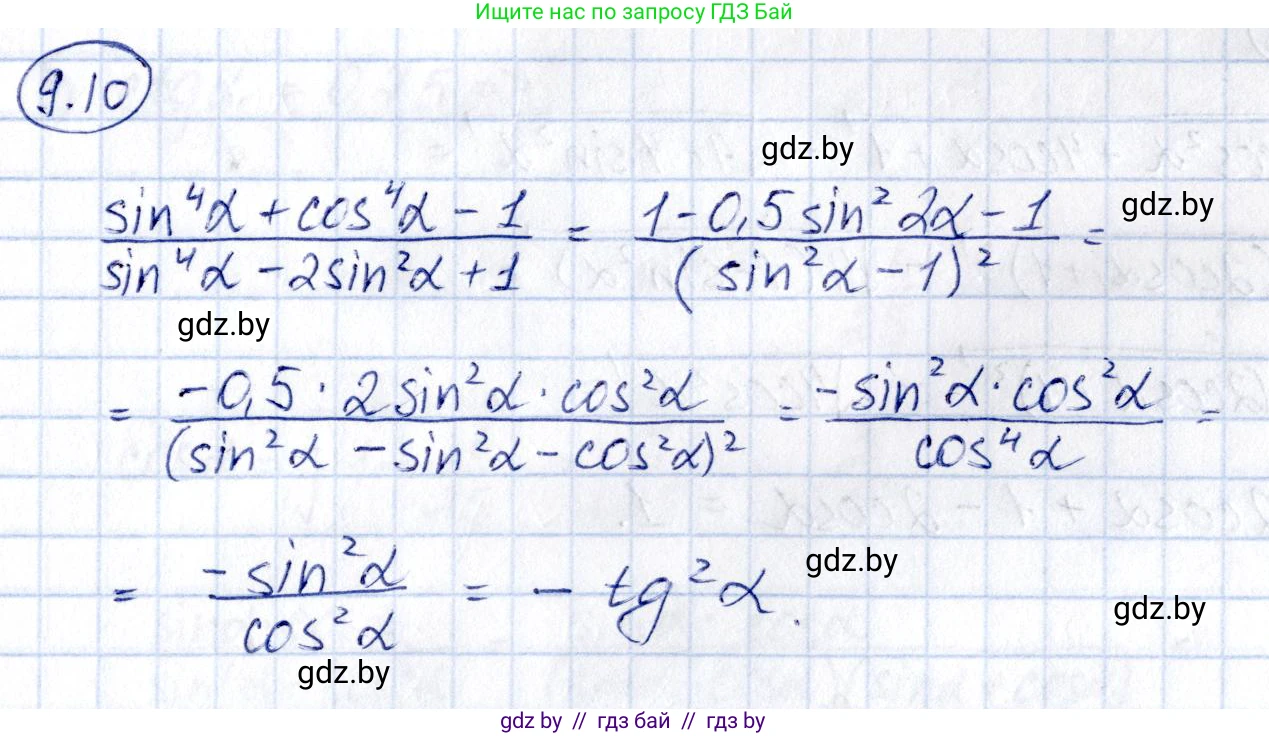 Ищите нас по запросу ГДЗ Бай
9.10
gdz.by
gdz.by
(sin⁴α + cos⁴α − 1)/(sin⁴α − 2sin²α + 1) = (1 − 0,5 sin² 2α − 1)/((sin²α − 1)²) =
gdz.by
= (−0,5 · 2 sin²α · cos²α)/((sin²α − sin²α − cos²α)²) = (−sin²α · cos²α)/(cos⁴α) =
= (−sin²α)/(cos²α) = − tg²α.
gdz.by
gdz.by
gdz.by
gdz by // гдз бай // гдз by